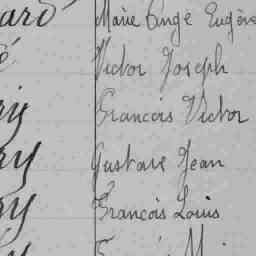 ard Marie Ange Eugène
é Victor Joseph
ry François Victor
ry Gustave Jean
ry François Louis